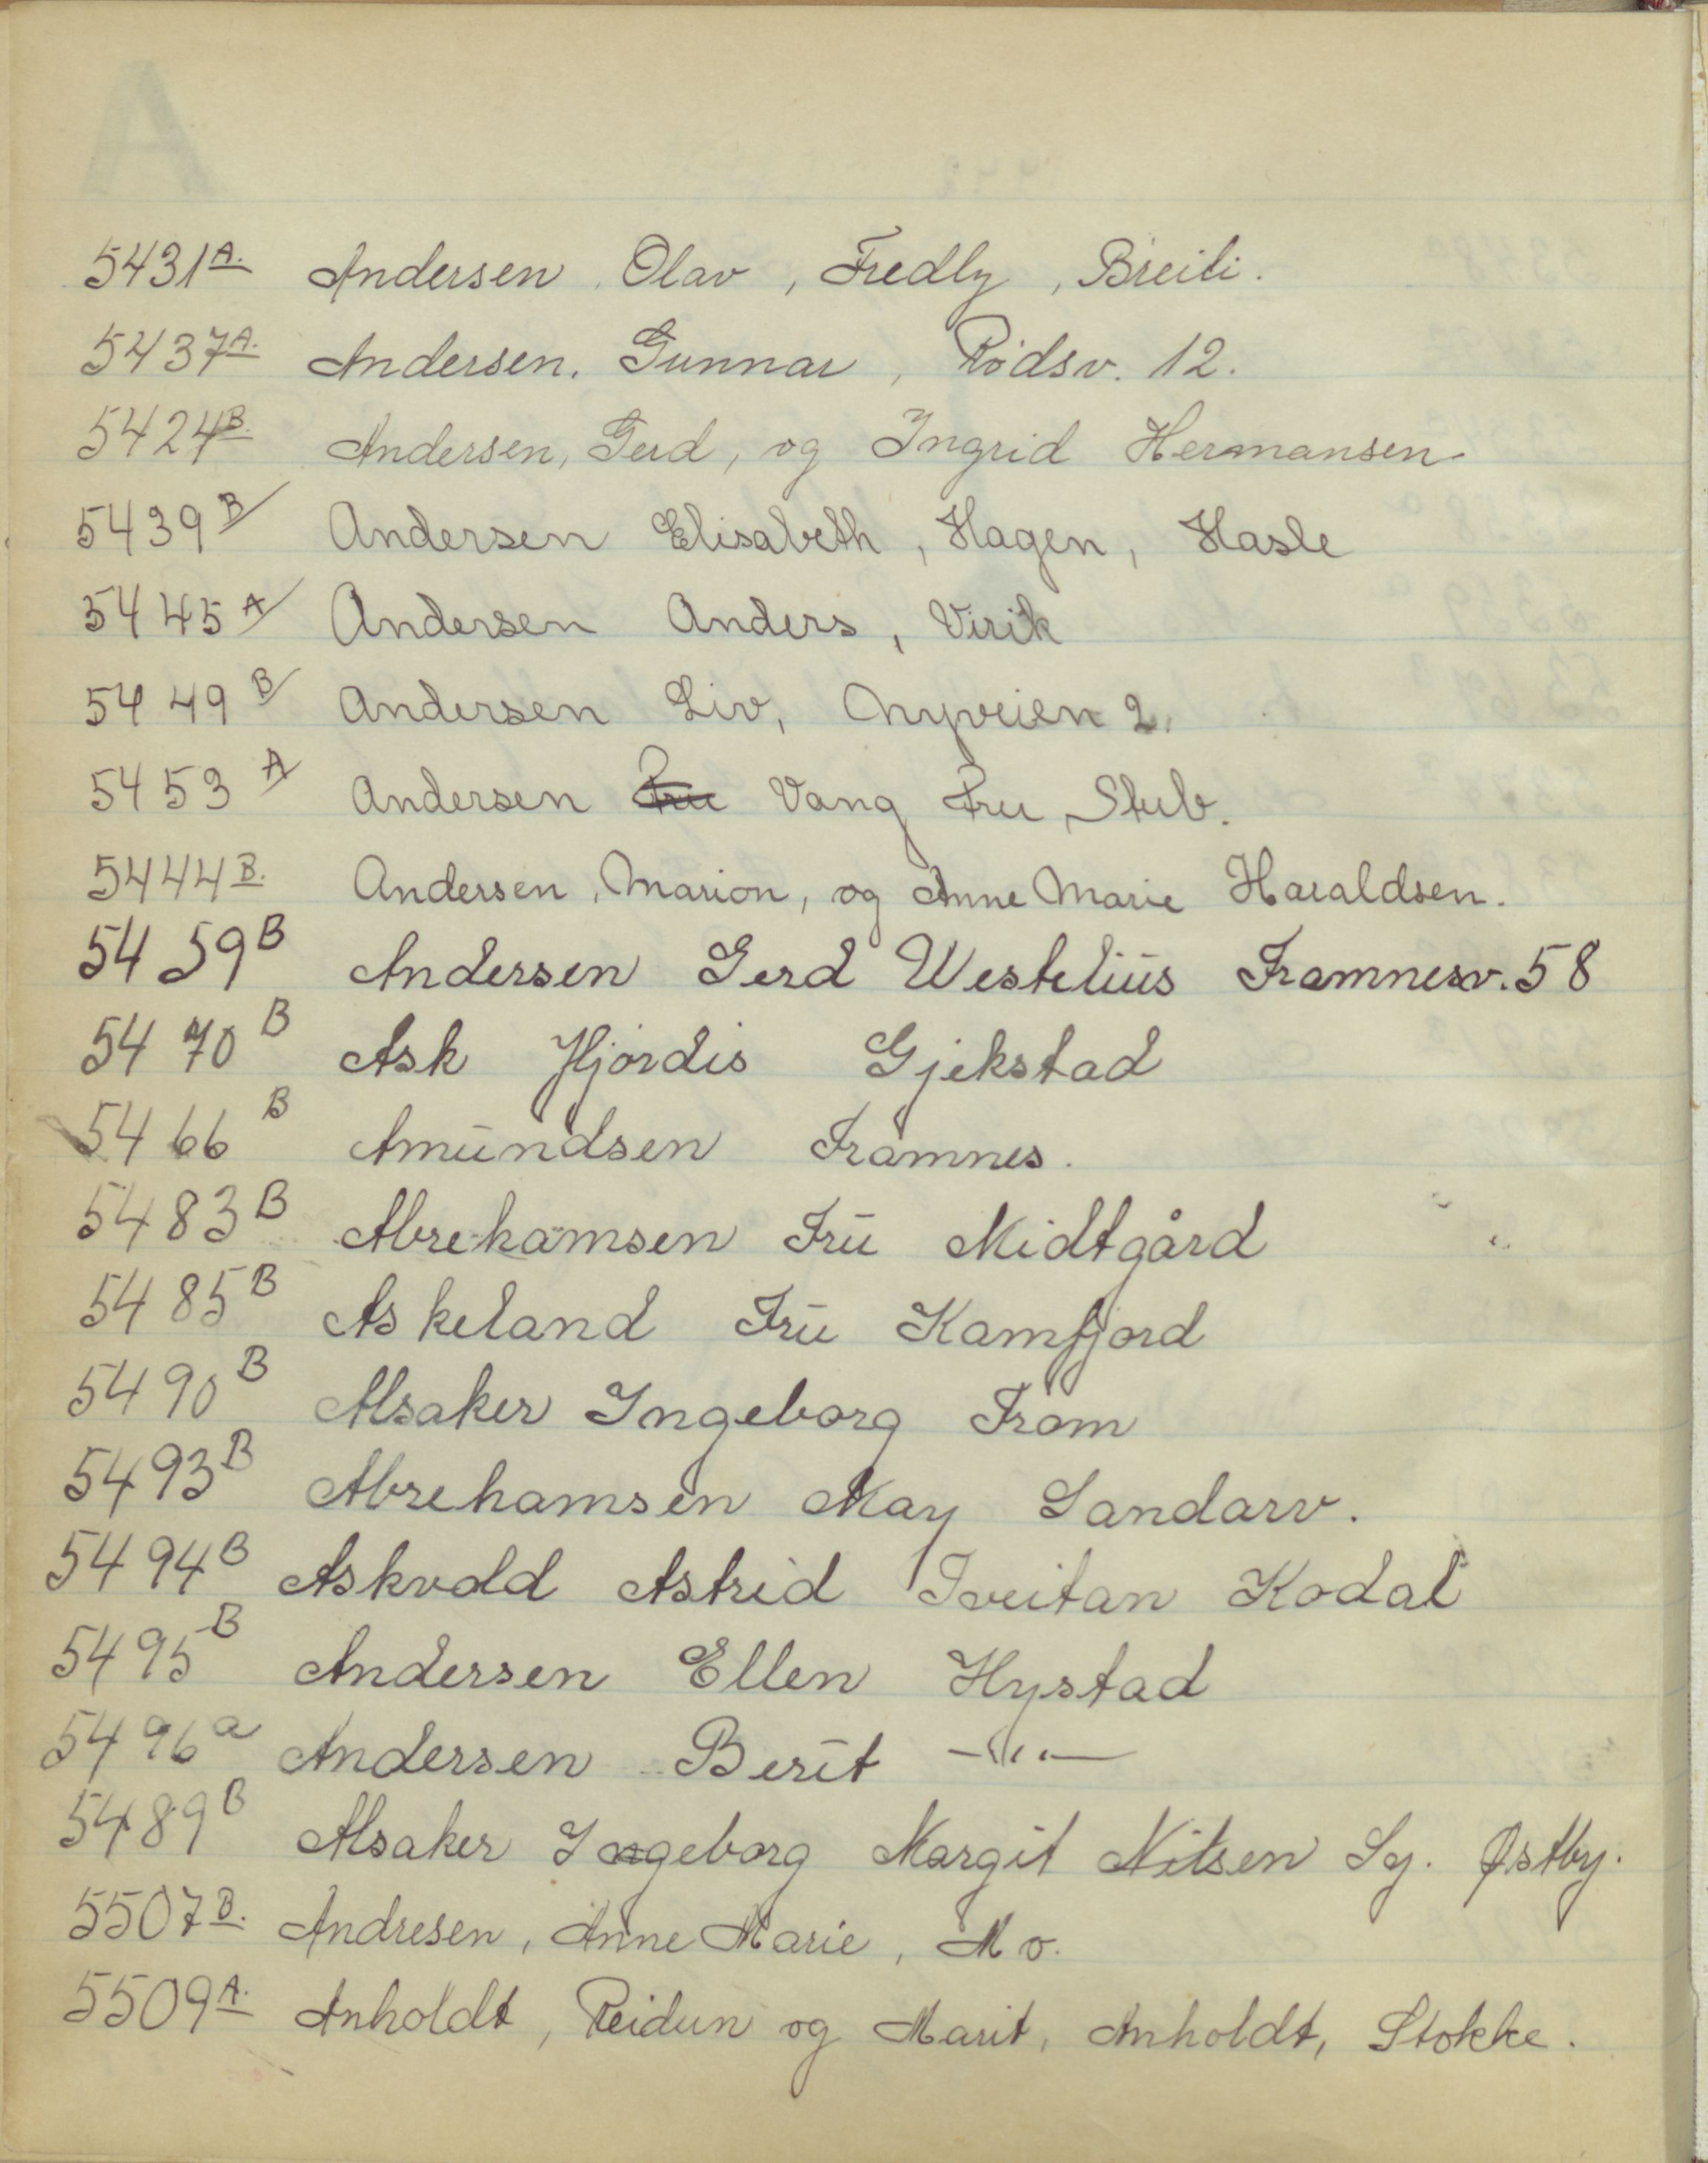 5431 A. Andersen, Olav, Fredly, Breili.
5437 A. Andersen. Gunnar, Rødsv. 12.
5424 B. Andersen, Gerd, og Ingrid Hermansen.
5439 B/ Andersen Elisabeth, Hagen, Hasle
5445 A/ Andersen Anders, Virik
5449 B/ Andersen Liv, Nyveien 2.
5453 A/ Andersen Fru Vang Fru, Stub.
5444 B. Andersen, Marion, og Anne Marie Haraldsen.
5459 B Andersen Gerd Westelius Framnesv. 58
5470 B Ask Hjørdis Gjekstad
5466 B Amundsen Framnes.
5483 B Abrehamsen Fru Midtgård
5485 B Askeland Fru Kamfjord
5490 B Alsaker Ingeborg Fram
5493 B Abrehamsen May Sandarv.
5494 B Askvold Astrid Tveitan Kodal
5495 B Andersen Ellen Hystad
5496 a Andersen Berit —"—
5489 B Alsaker Ingeborg Margit Nilsen Sg. Østby.
5507 B. Andresen, Anne Marie, Mo.
5509 A. Anholdt, Reidun og Marit, Anholdt, Stokke.